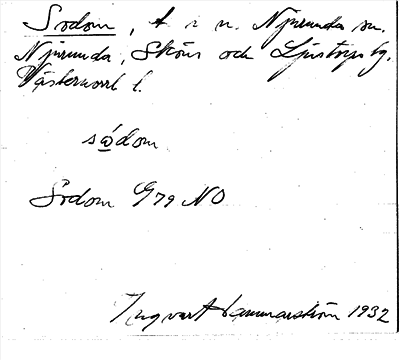 Sodom, t i n. Njurunda sn.
Njurunda, Sköns och Ljustorps tg.
Västernorrl l.
sɷdom
Sodom G79 NO
Ingvar Hammarström 1932